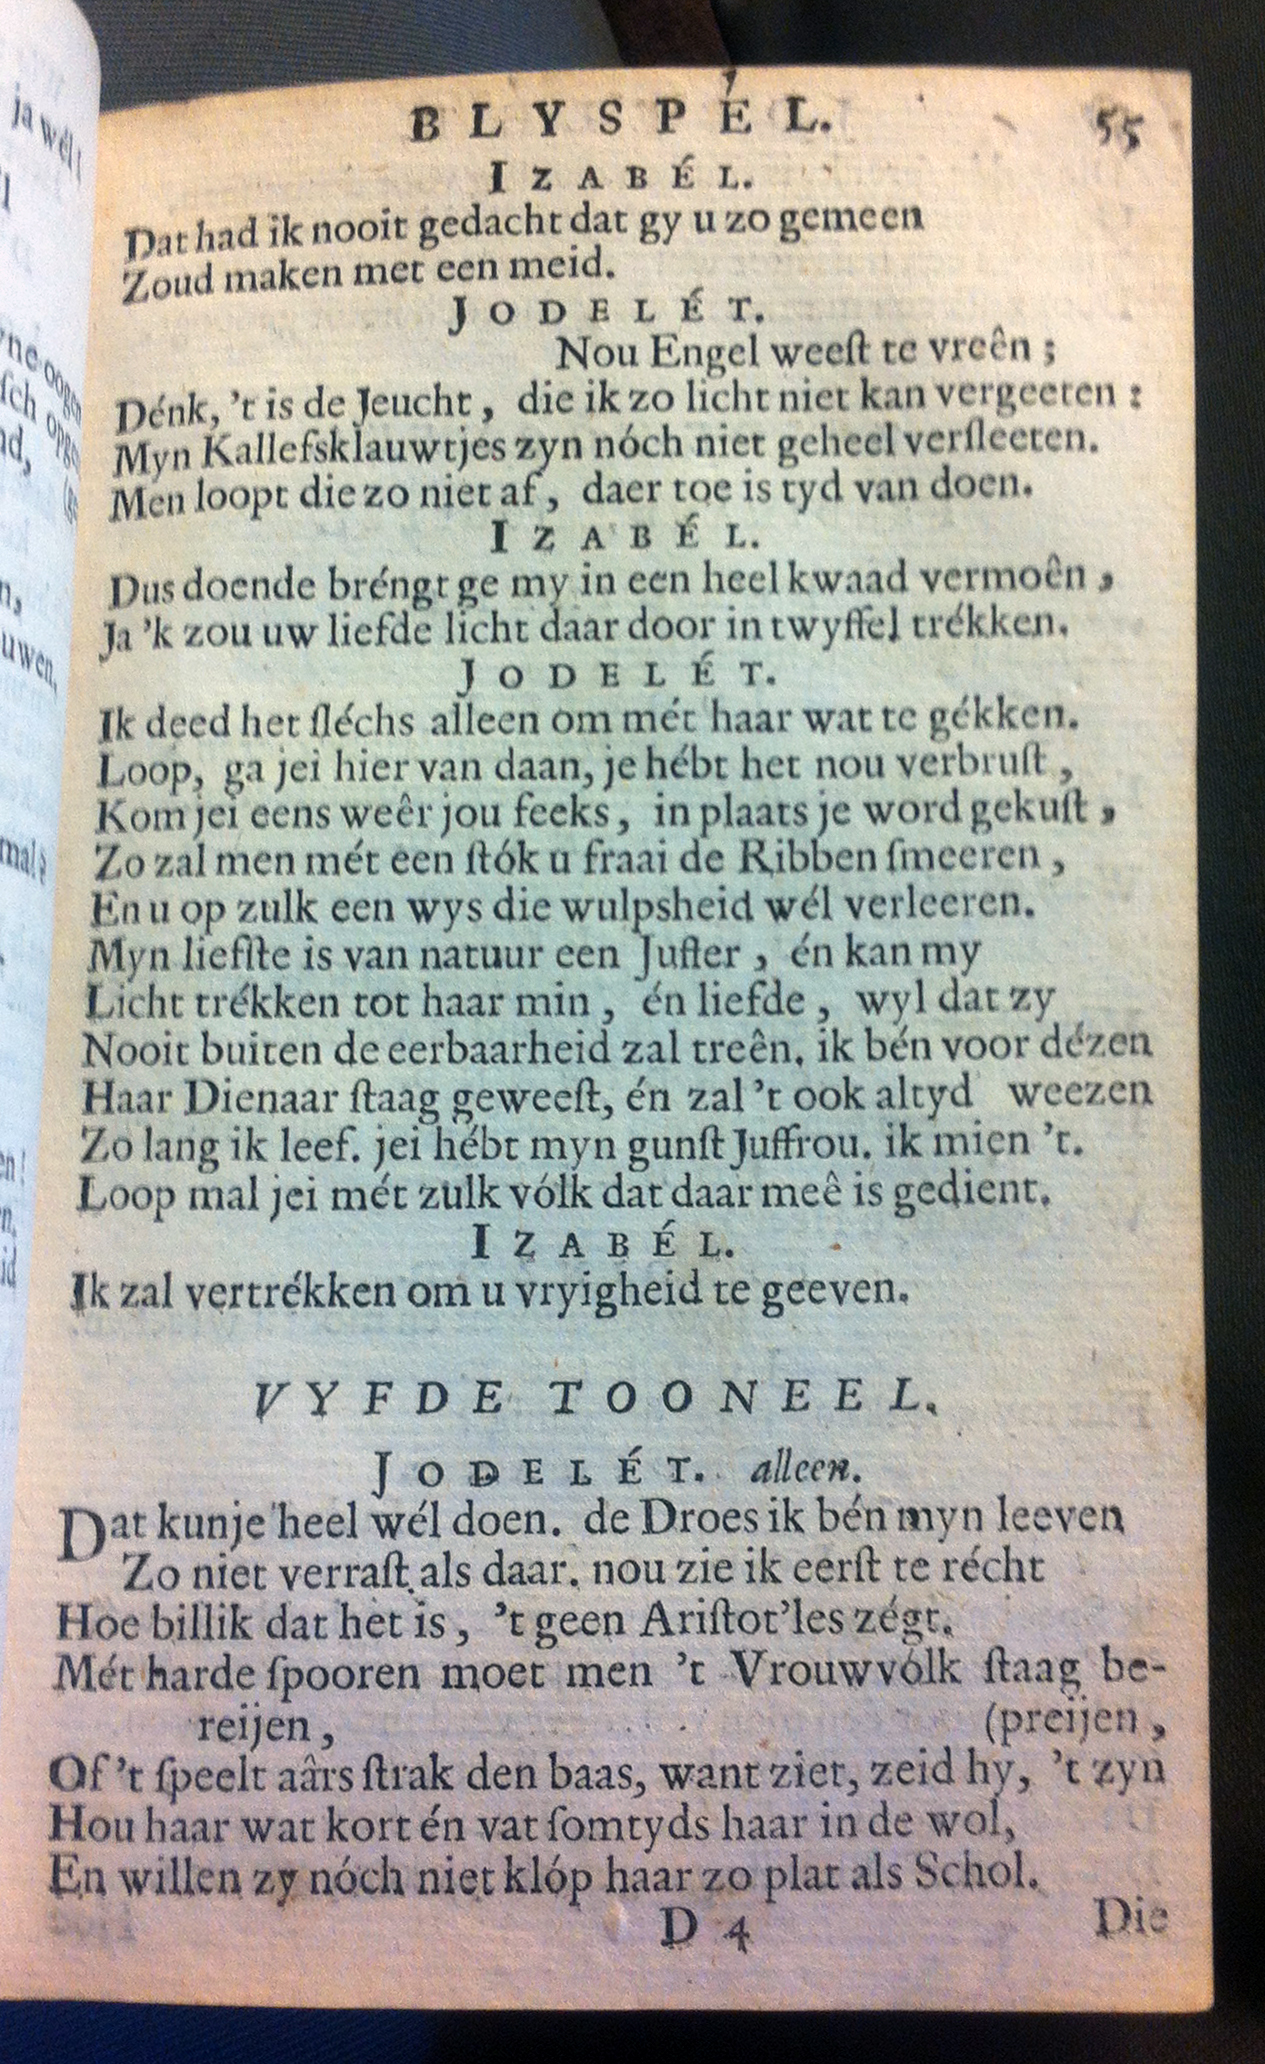 BLYSPÉL. 55
IZABÉL.
Dat had ik nooit gedacht dat gy u zo gemeen
Zoud maken met een meid.
JODELÉT.
Nou Engel weeſt te vreên ;
Dénk, 't is de Jeucht, die ik zo licht niet kan vergeeten :
Myn Kallefsklauwtjes zyn nóch niet geheel verſleeten.
Men loopt die zo niet af, daer toe is tyd van doen.
IZABÉL.
Dus doende bréngt ge my in een heel kwaad vermoên,
Ja 'k zou uw liefde licht daar door in twyffel trékken.
JODELÉT.
Ik deed het ſléchs alleen om mét haar wat te gékken.
Loop, ga jei hier van daan, je hébt het nou verbruſt,
Kom jei eens weêr jou feeks, in plaats je word gekuſt,
Zo zal men mét een ſtók u fraai de Ribben ſmeeren,
En u op zulk een wys die wulpsheid wél verleeren.
Myn liefſte is van natuur een Juffer, én kan my
Licht trékken tot haar min, én liefde, wyl dat zy
Nooit buiten de eerbaarheid zal treên. ik bén voor dézen
Haar Dienaar ſtaag geweeſt, én zal 't ook altyd weezen
Zo lang ik leef. jei hébt myn gunſt Juffrou. ik mien 't.
Loop mal jei mét zulk vólk dat daar meê is gedient.
IZABÉL.
Ik zal vertrékken om u vryigheid te geeven.
VYFDE TOONEEL.
JODELÉT. alleen.
Dat kunje heel wél doen. de Droes ik bén myn leeven
Zo niet verraſt als daar. nou zie ik eerſt te récht
Hoe billik dat het is, 't geen Ariſtot'les zégt.
Mét harde ſpooren moet men 't Vrouwvólk ſtaag be-
reijen, (preijen,
Of 't ſpeelt aârs ſtrak den baas, want ziet, zeid hy, 't zyn
Hou haar wat kort én vat ſomtyds haar in de wol,
En willen zy nóch niet klóp haar zo plat als Schol.
D 4 Die